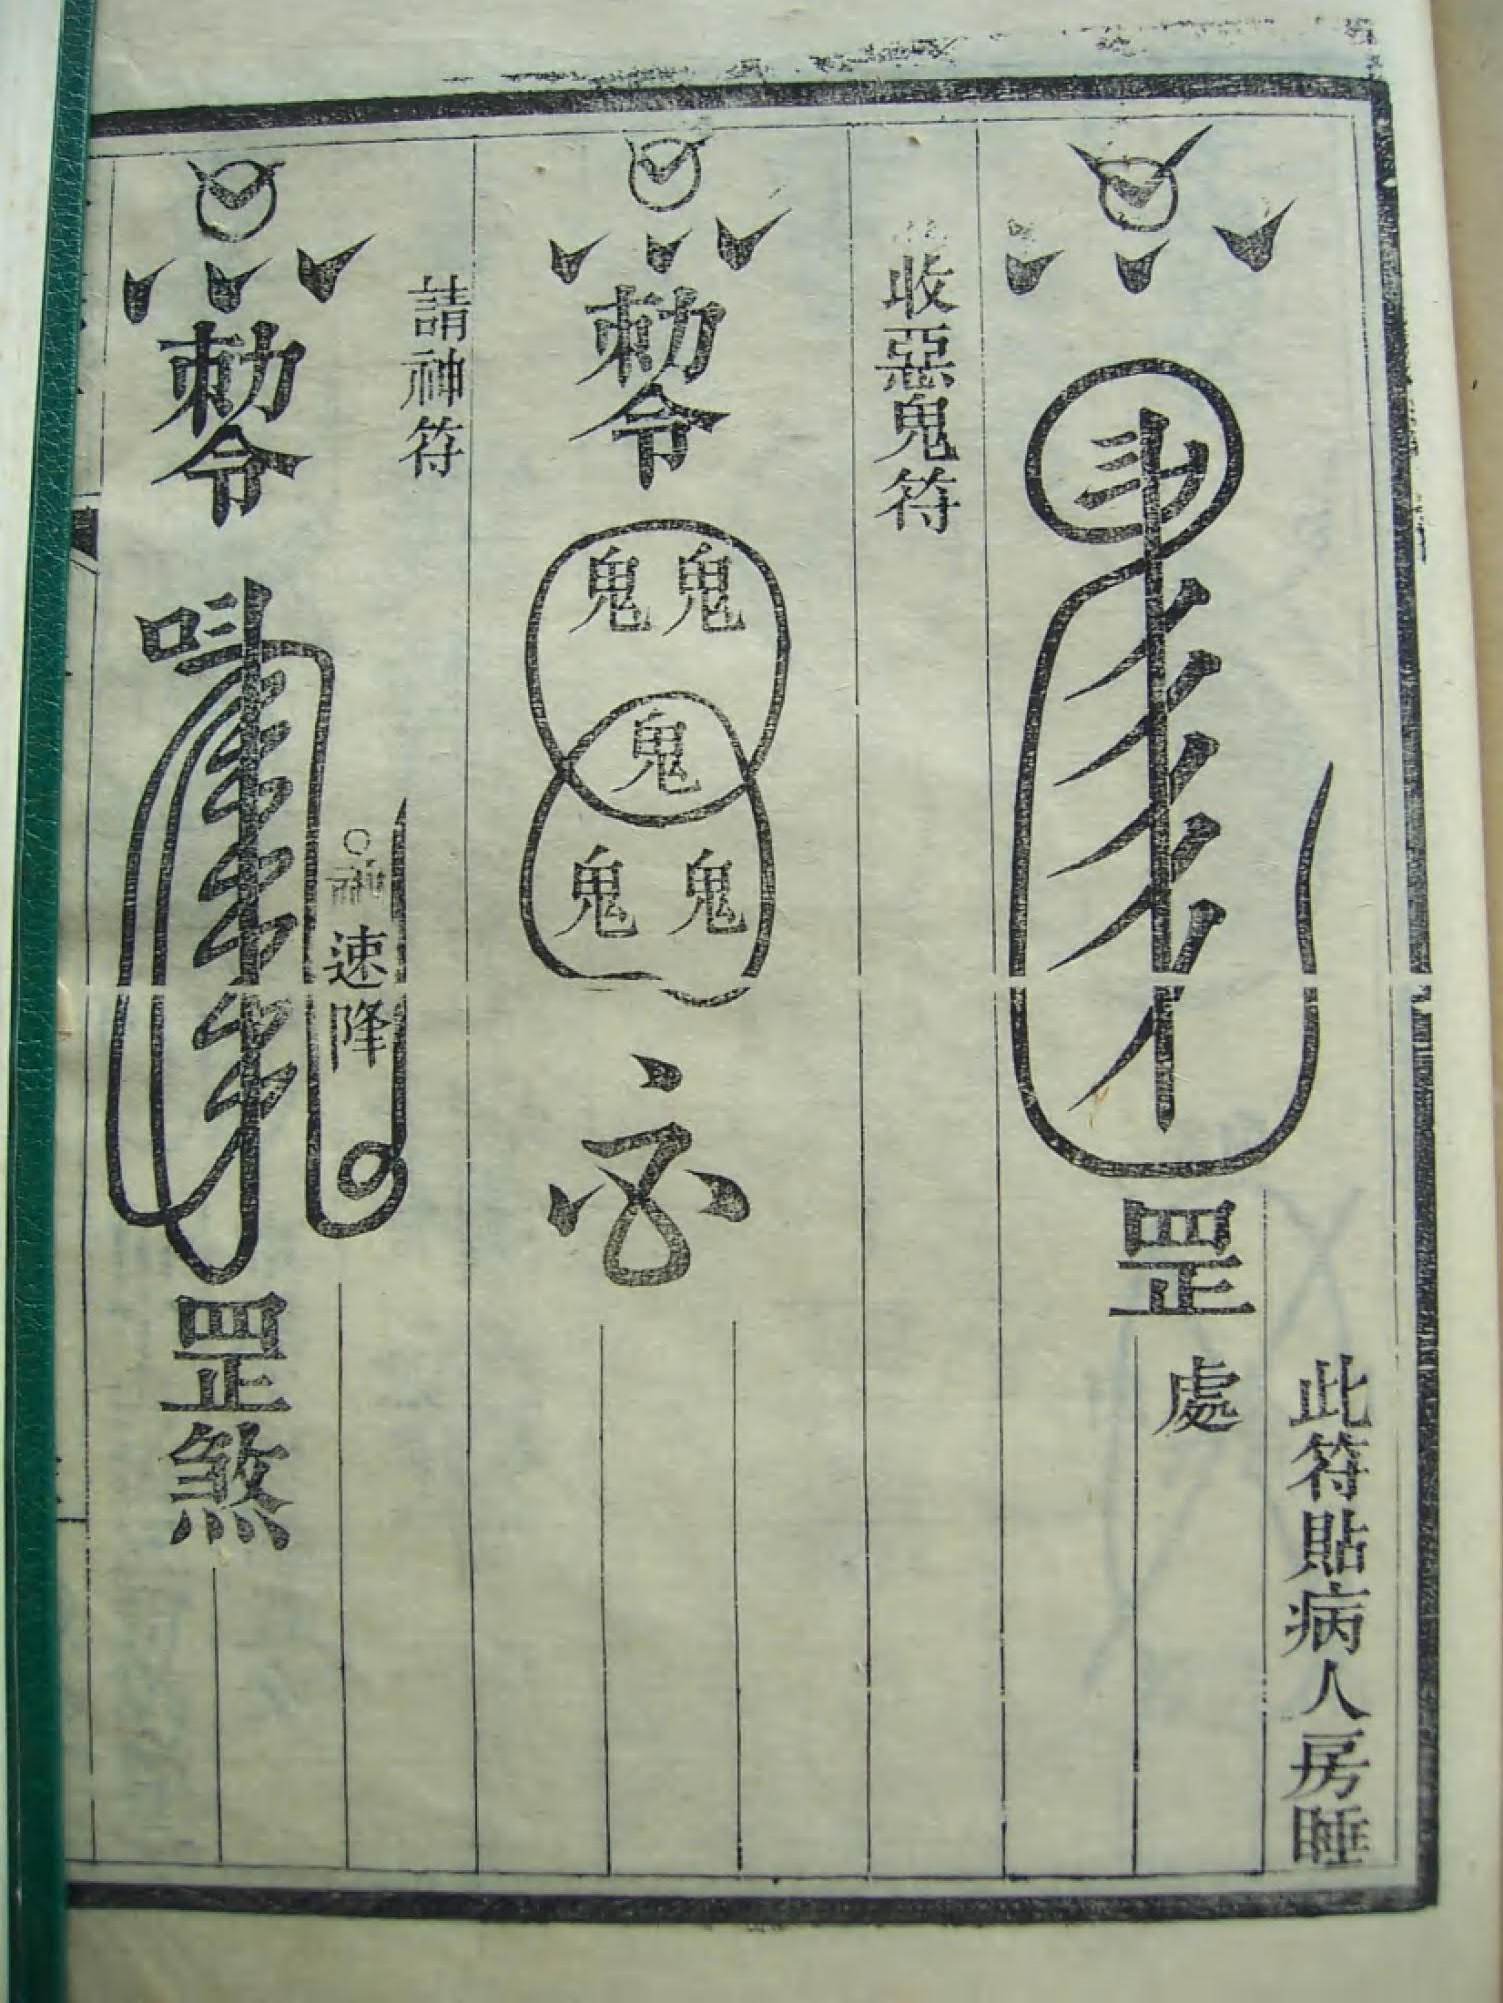 罡
此符貼病人房睡
處
收惡鬼符
勅令
鬼鬼
鬼
鬼鬼
請神符
勅令
速降
罡煞